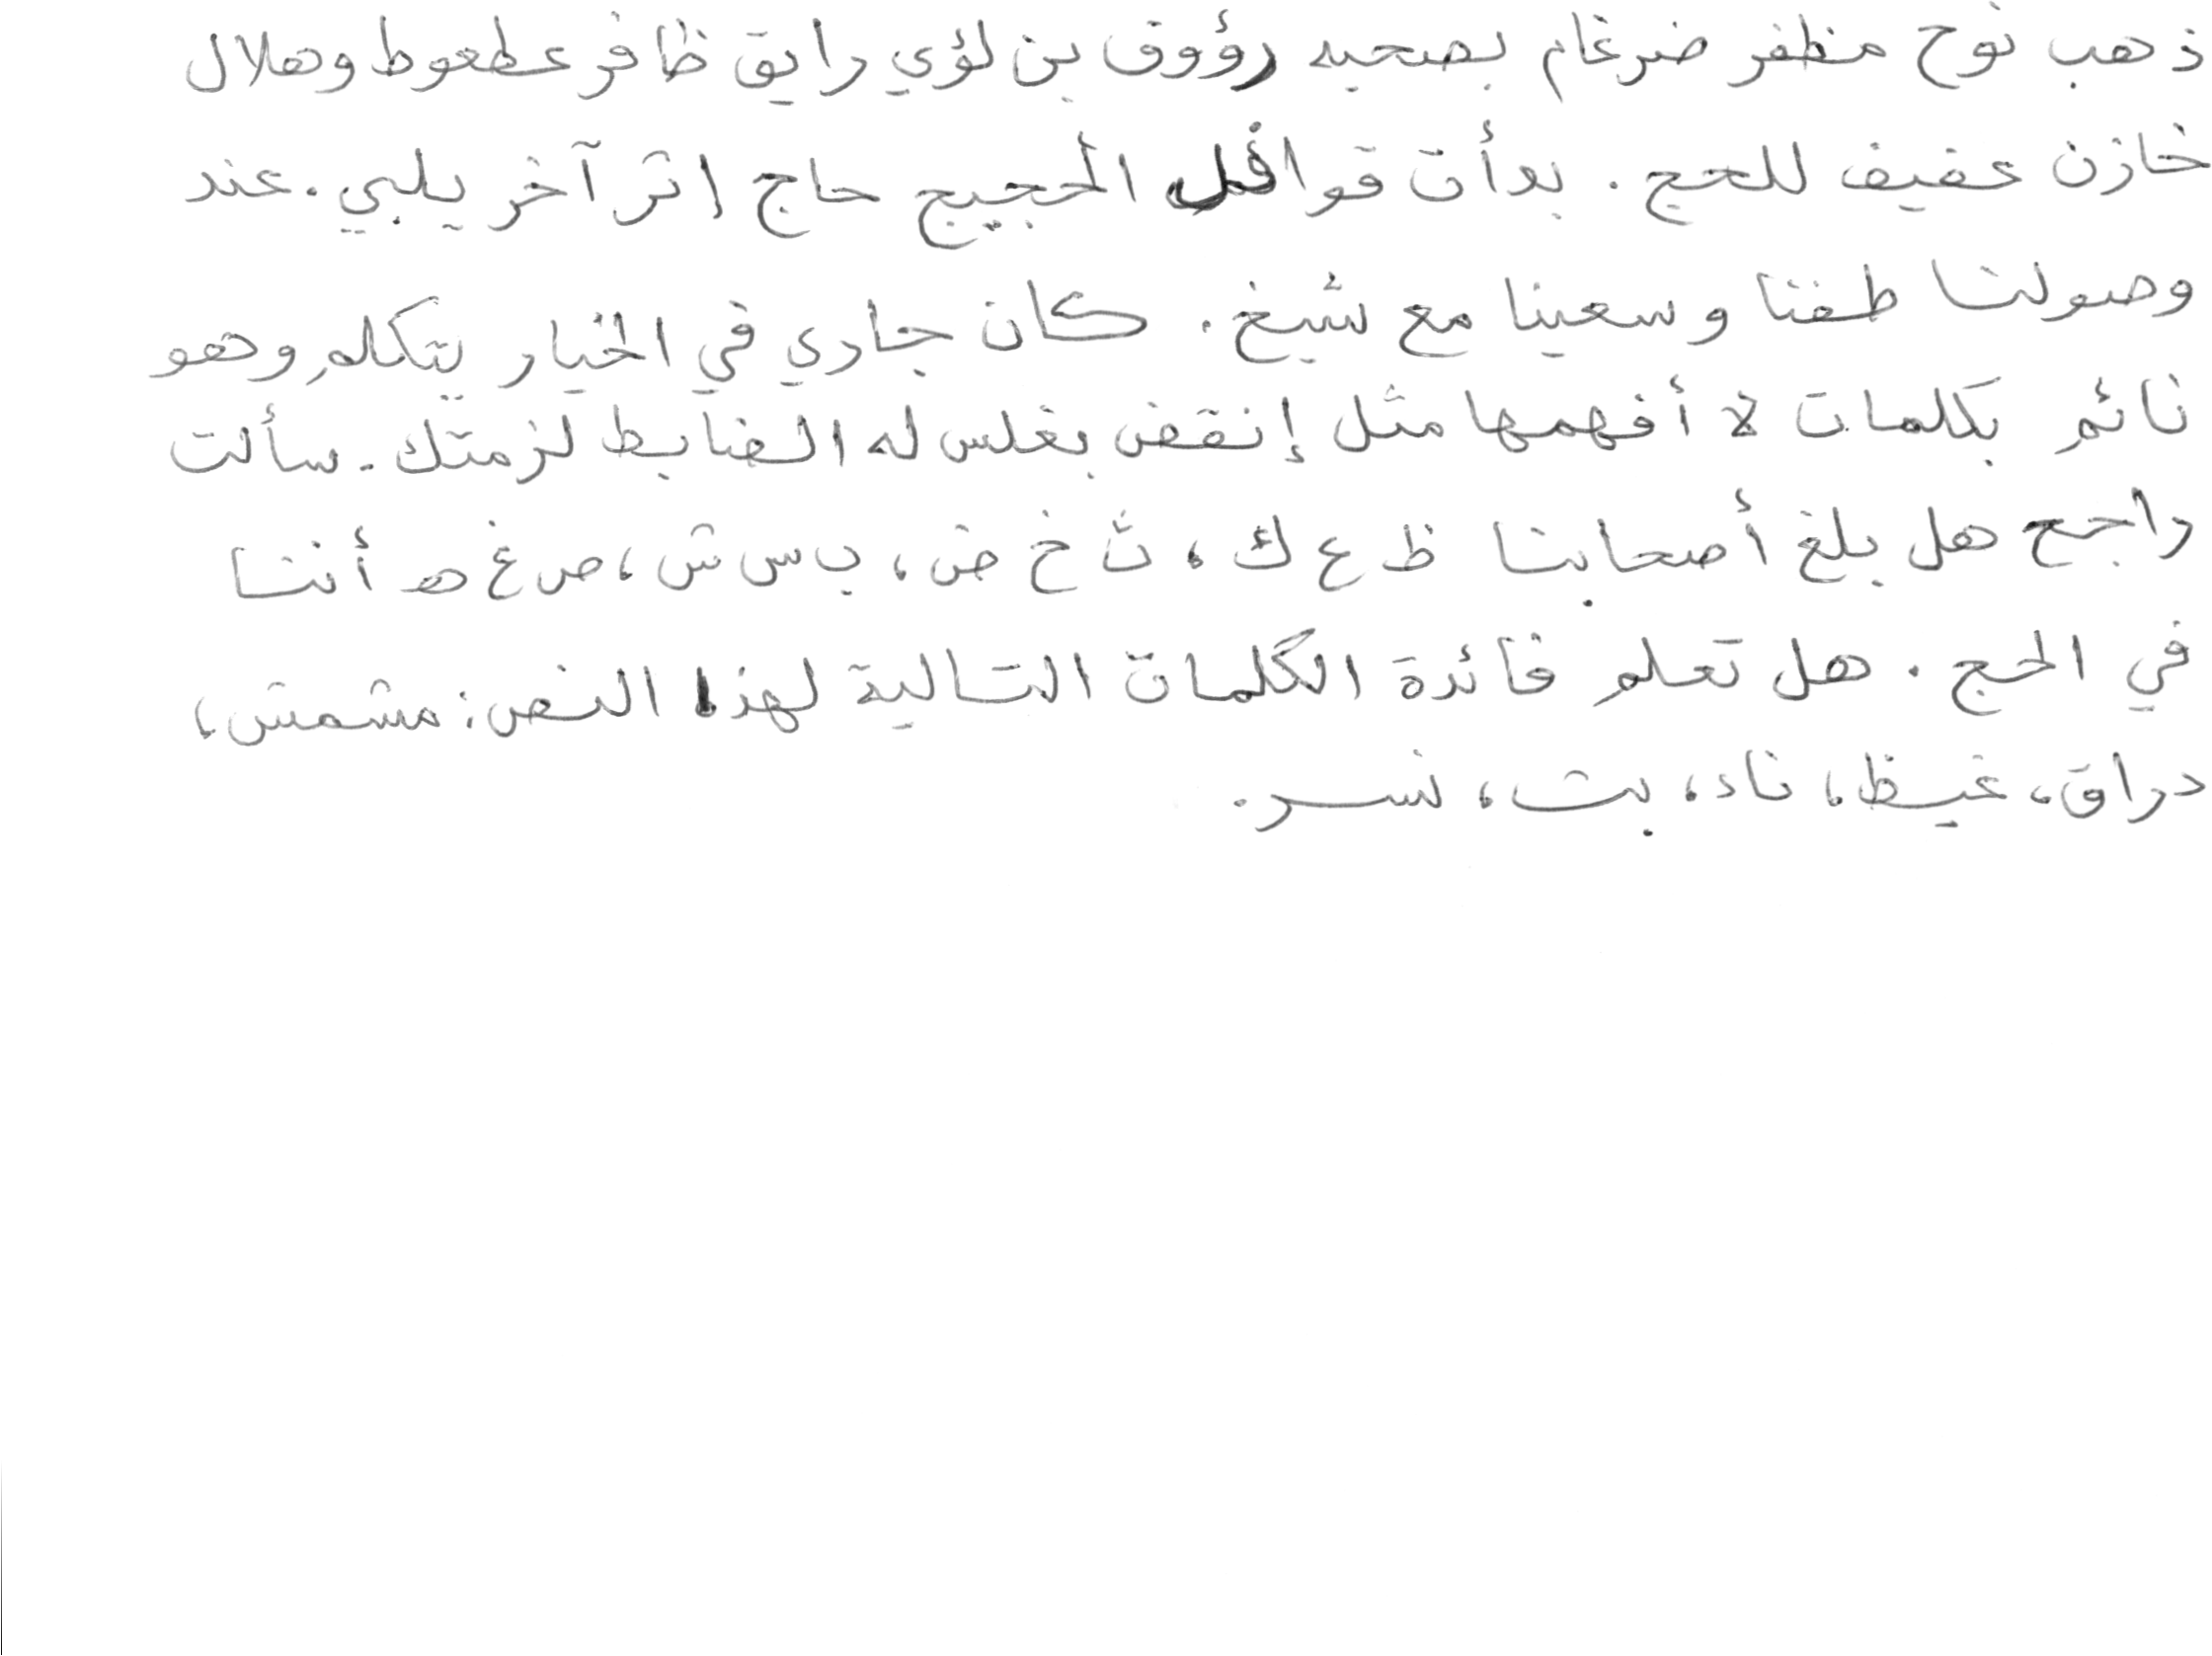 ذهب نوح مظفر ضرغام بصحبه رؤوق بن لؤي رايق ظافر عطعوط وهلال
خازن عفيف للحج. بدأت قوافل الحجيج حاج اثر آخر يلبي. عند
وصولنا طفنا وسعينا مع شيخ. كان جاري في الخيار يتكلم وهو
نائم بكلمات لا أفهمها مثل إنقض بغلس له الضابط لزمتك. سألت
راجح هل بلغ أصحابنا ظ ع ك، ث خ ض، ب س ش، ص غ ه أننا
في الحج. هل تعلم فائدة الكلمات التالية لهذا النص: مشمش،
دراق، غيظ، ناء، بث، نسر.